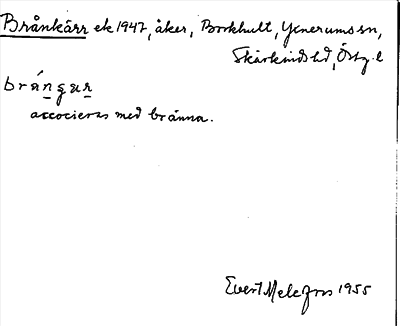 Brånkärr ek 1947, åker, Borkhult, Yxnerums sn,
Skärkinds hd, Östg. l
associeras med bränna.
Evert Melefors 1955